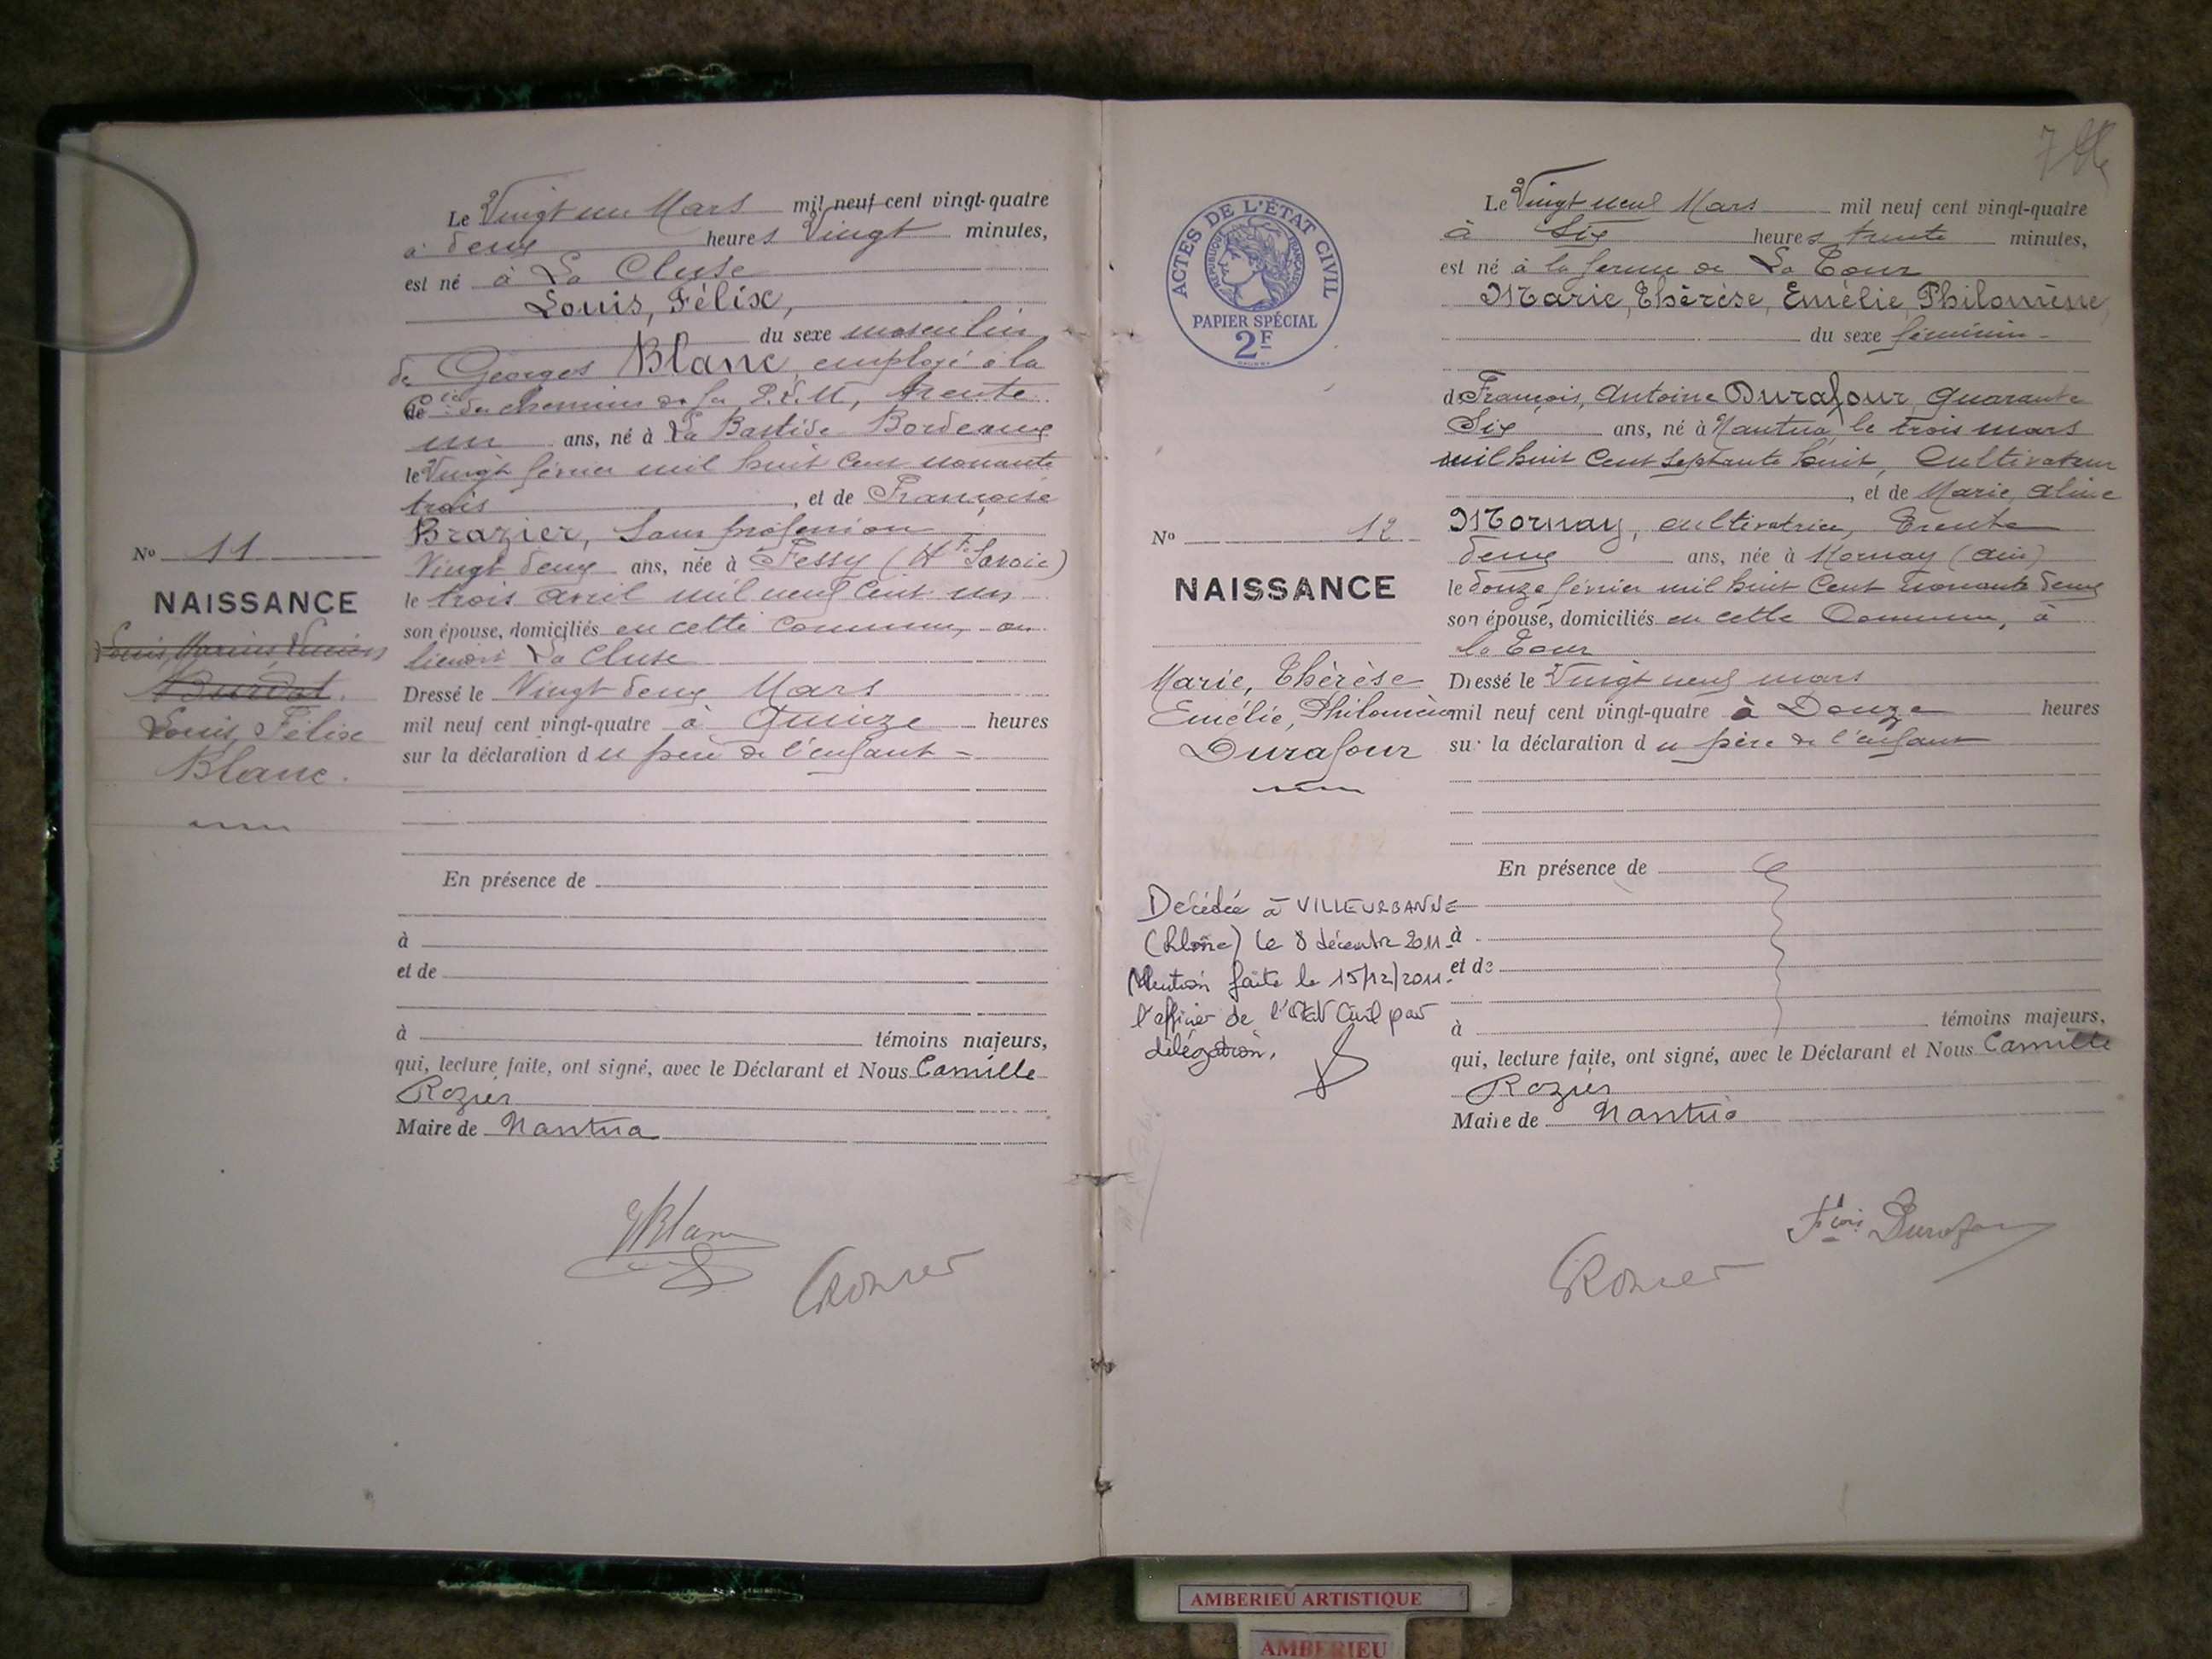 Le Vingt un Mars mil neuf cent vingt-quatre
à deux heures Vingt minutes,
est né à La Cluse
Louis, Félix,
du sexe masculin
de Georges Blanc, employé à la
Cie des chemins de fer P.L.M, trente
un ans, né à La Bastide Bordeaux
le Vingt février mil huit cent nonante
trois, et de Françoise
Brazier, Sans profession
Vingt deux ans, née à Fessy (Hte Savoie)
le trois avril mil neuf cent un
son épouse, domiciliés en cette Commune, au
lieudit La Cluse
Dressé le Vingt deux Mars
mil neuf cent vingt-quatre à Quinze heures
sur la déclaration du père de l'enfant =
En présence de
à
et de
à témoins majeurs,
qui, lecture faite, ont signé, avec le Déclarant et Nous Camille
Rozier
Maire de Nantua
No 11
NAISSANCE
Louis, Marius, Lucien
Burdat.
Louis, Félix
Blanc.
GBlanc
CRozier
ACTES DE L'ÉTAT CIVIL
RÉPUBLIQUE FRANÇAISE
PAPIER SPÉCIAL
2F
No 12
NAISSANCE
Marie, Thérèse
Emélie, Philomène
Durafour
Décédée à VILLEURBANNE
(Rhône) le 8 décembre 2011.
Mention faite le 15/12/2011.
l'officier de l'état Civil par
délégation,
7
Le Vingt neuf Mars mil neuf cent vingt-quatre
à Six heures trente minutes,
est né à la ferme de La Tour
Marie, Thérèse, Emélie, Philomène,
du sexe féminin
de François, Antoine Durafour, Quarante
Six ans, né à Nantua, le trois mars
mil huit cent septante huit, Cultivateur
, et de Marie, Aline
Mornay, cultivatrice, Trente
deux ans, née à Mornay (Ain)
le douze février mil huit cent nonante deux
son épouse, domiciliés en cette Commune, à
la Tour
Dressé le Vingt neuf mars
mil neuf cent vingt-quatre à Douze heures
sur la déclaration du père de l'enfant
En présence de
à
et de
à témoins majeurs,
qui, lecture faite, ont signé, avec le Déclarant et Nous Camille
Rozier
Maire de Nantua
Fçois Durafour
CRozier
AMBERIEU ARTISTIQUE
AMBERIEU